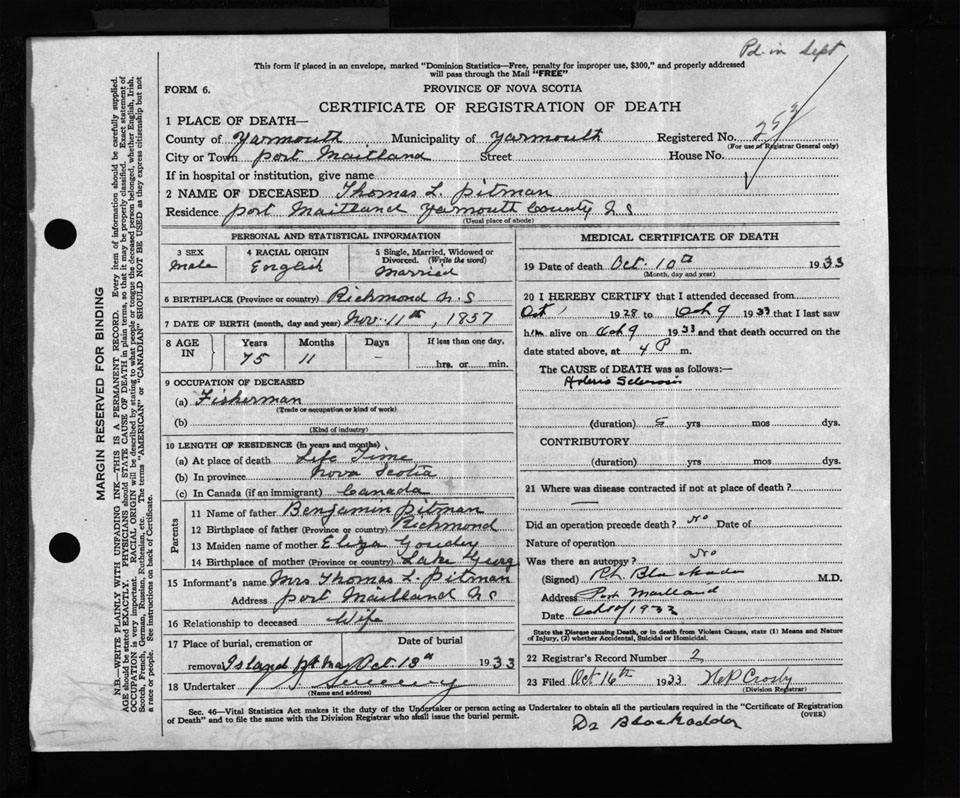 Pd. in Sept
This form if placed in an envelope, marked "Dominion Statistics—Free, penalty for improper use, $300," and properly addressed
will pass through the Mail "FREE"
FORM 6.
PROVINCE OF NOVA SCOTIA
CERTIFICATE OF REGISTRATION OF DEATH
1 PLACE OF DEATH—
County of Yarmouth Municipality of Yarmouth Registered No. 253
(For use of Registrar General only)
City or Town Port Maitland Street House No.
If in hospital or institution, give name
2 NAME OF DECEASED Thomas L. Pitman
Residence Port Maitland Yarmouth County N S
(Usual place of abode)
PERSONAL AND STATISTICAL INFORMATION
3 SEX 4 RACIAL ORIGIN 5 Single, Married, Widowed or
Divorced. (Write the word)
Male English Married
6 BIRTHPLACE (Province or country) Richmond N.S
7 DATE OF BIRTH (month, day and year) Nov. 11th, 1857
8 AGE IN Years Months Days If less than one day,
75 11 - hrs. or min.
9 OCCUPATION OF DECEASED
(a) Fisherman
(Trade or occupation or kind of work)
(b)
(Kind of industry)
10 LENGTH OF RESIDENCE (In years and months)
(a) At place of death Life Time
(b) In province Nova Scotia
(c) In Canada (if an immigrant) Canada
Parents
11 Name of father Benjamin Pitman
12 Birthplace of father (Province or country) Richmond
13 Maiden name of mother Eliza Goudey
14 Birthplace of mother (Province or country) Lake Georg
15 Informant's name Mrs Thomas L. Pitman
Address Port Maitland N S
16 Relationship to deceased Wife
17 Place of burial, cremation or Date of burial
removal Island Pt Mai Oct. 13th 1933
18 Undertaker
(Name and address)
MEDICAL CERTIFICATE OF DEATH
19 Date of death Oct. 10th 1933
(Month, day and year)
20 I HEREBY CERTIFY that I attended deceased from
Oct 1 1928 to Oct 9 1933 that I last saw
him alive on Oct 9 1933 and that death occurred on the
date stated above, at 4 P m.
The CAUSE of DEATH was as follows:—
Arterio Sclerosis
(duration) 5 yrs mos dys.
CONTRIBUTORY
(duration) yrs mos dys.
21 Where was disease contracted if not at place of death?
Did an operation precede death? No Date of
Nature of operation
Was there an autopsy? No
(Signed) Blackadar M.D.
Address Port Maitland
Date Oct 10/1933
State the Disease causing Death, or in death from Violent Causes, state (1) Means and Nature
of Injury, (2) whether Accidental, Suicidal or Homicidal.
22 Registrar's Record Number 2,
23 Filed Oct 16th 1933 H P Crosby
(Division Registrar)
Sec. 46—Vital Statistics Act makes it the duty of the Undertaker or person acting as Undertaker to obtain all the particulars required in the "Certificate of Registration
of Death" and to file the same with the Division Registrar who shall issue the burial permit.
(OVER)
Dr Blackadar
MARGIN RESERVED FOR BINDING
N.B.—WRITE PLAINLY WITH UNFADING INK—THIS IS A PERMANENT RECORD. Every item of information should be carefully supplied.
AGE should be stated EXACTLY. PHYSICIANS should STATE CAUSE OF DEATH in plain terms, so that it may be properly classified. Exact statement of
OCCUPATION is very important. RACIAL ORIGIN will be described by stating to what people or tongue the deceased person belonged, whether English, Irish,
Scotch, French, German, Russian, Ruthenian, etc. The terms "AMERICAN" or "CANADIAN" SHOULD NOT BE USED as they express citizenship but not
a race or people. See instructions on back of Certificate.